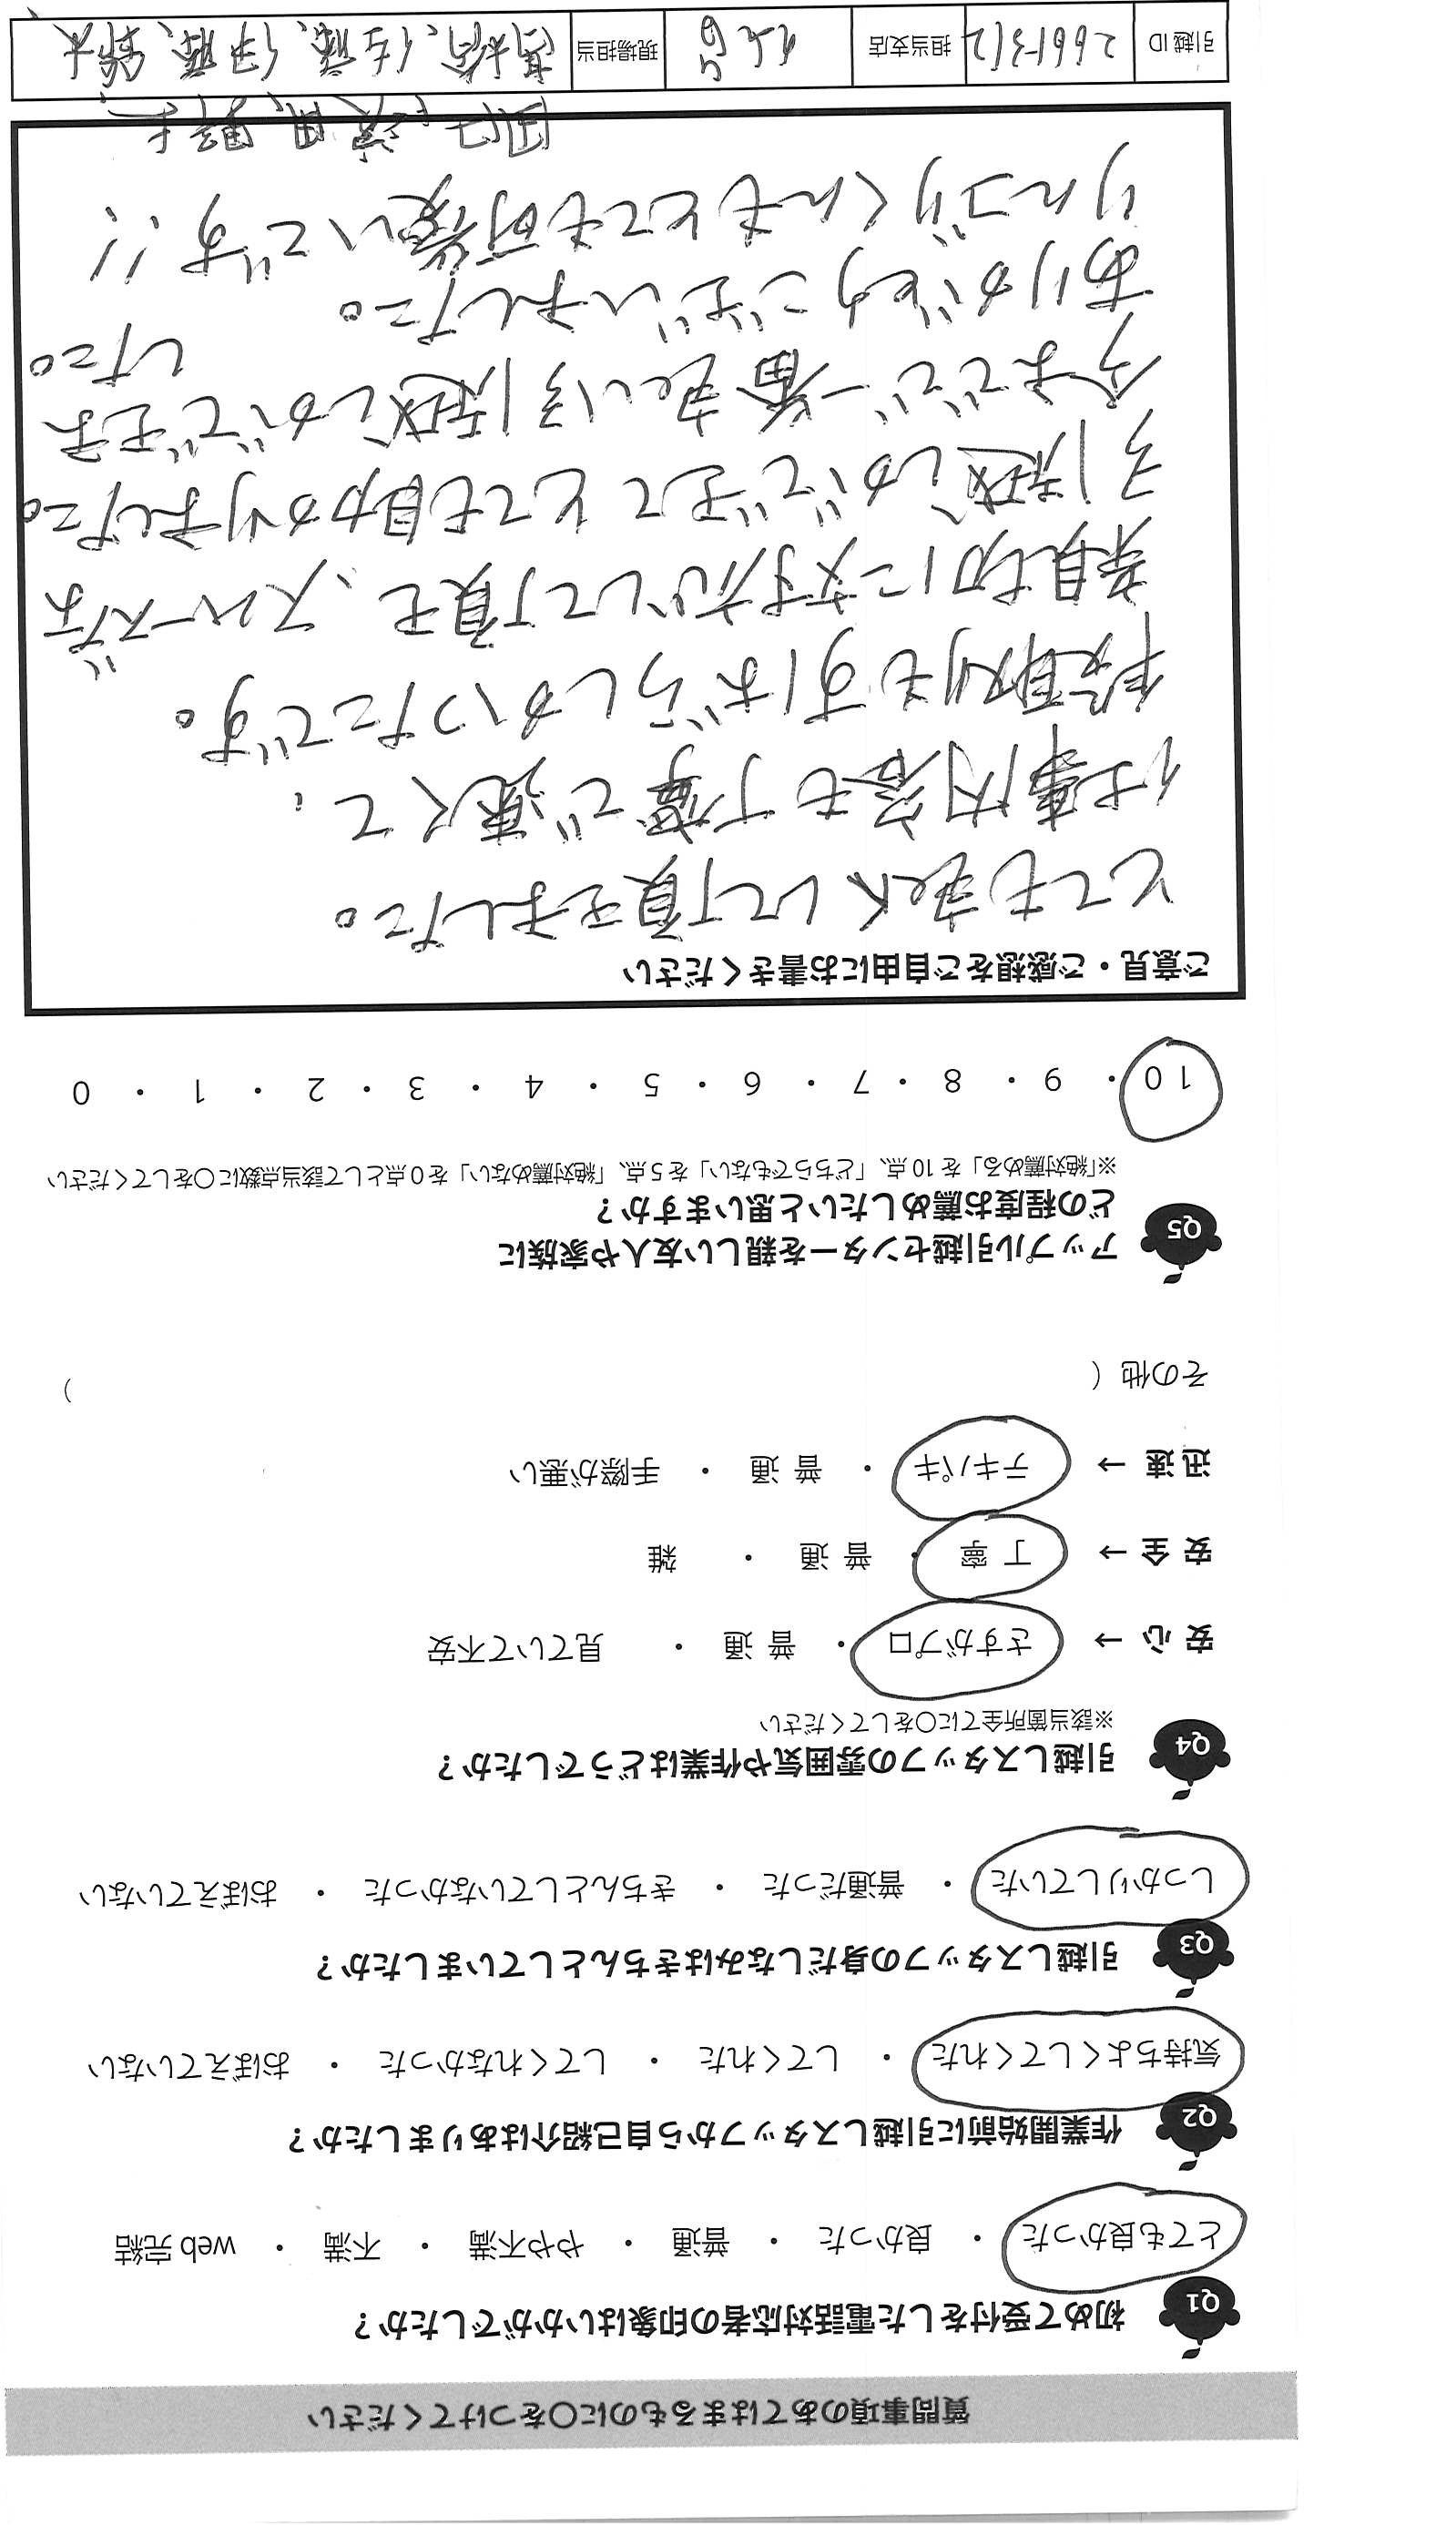 質問事項のあてはまるものに○をつけてください
Q1 初めて受付をした電話対応者の印象はいかがでしたか？
とても良かった ・ 良かった ・ 普通 ・ やや不満 ・ 不満 ・ web完結
Q2 作業開始前に引越しスタッフから自己紹介はありましたか？
気持ちよくしてくれた ・ してくれた ・ してくれなかった ・ おぼえていない
Q3 引越しスタッフの身だしなみはきちんとしていましたか？
しっかりしていた ・ 普通だった ・ きちんとしていなかった ・ おぼえていない
Q4 引越しスタッフの雰囲気や作業はどうでしたか？
※該当箇所全てに○をしてください
安心 → さすがプロ ・ 普通 ・ 見ていて不安
安全 → 丁寧 ・ 普通 ・ 雑
迅速 → テキパキ ・ 普通 ・ 手際が悪い
その他（ ）
Q5 アップル引越センターを親しい友人や家族に
どの程度お薦めしたいと思いますか？
※「絶対薦める」を10点、「どちらでもない」を5点、「絶対薦めない」を0点として該当点数に○をしてください
10 ・ 9 ・ 8 ・ 7 ・ 6 ・ 5 ・ 4 ・ 3 ・ 2 ・ 1 ・ 0
ご意見・ご感想をご自由にお書きください
とても良くして頂きました。
仕事内容も丁寧で速くて、
役割りもすばらしかったです。
親切に対応して頂き、スムーズな
引越しができてとても助かりました。
今までで一番良い引越しができま
した。
ありがとうございました。
りんゴリくんもとても可愛いです!!
引越ID 2661312 担当支店 現場担当 高橋、佐藤、伊藤、鈴木、